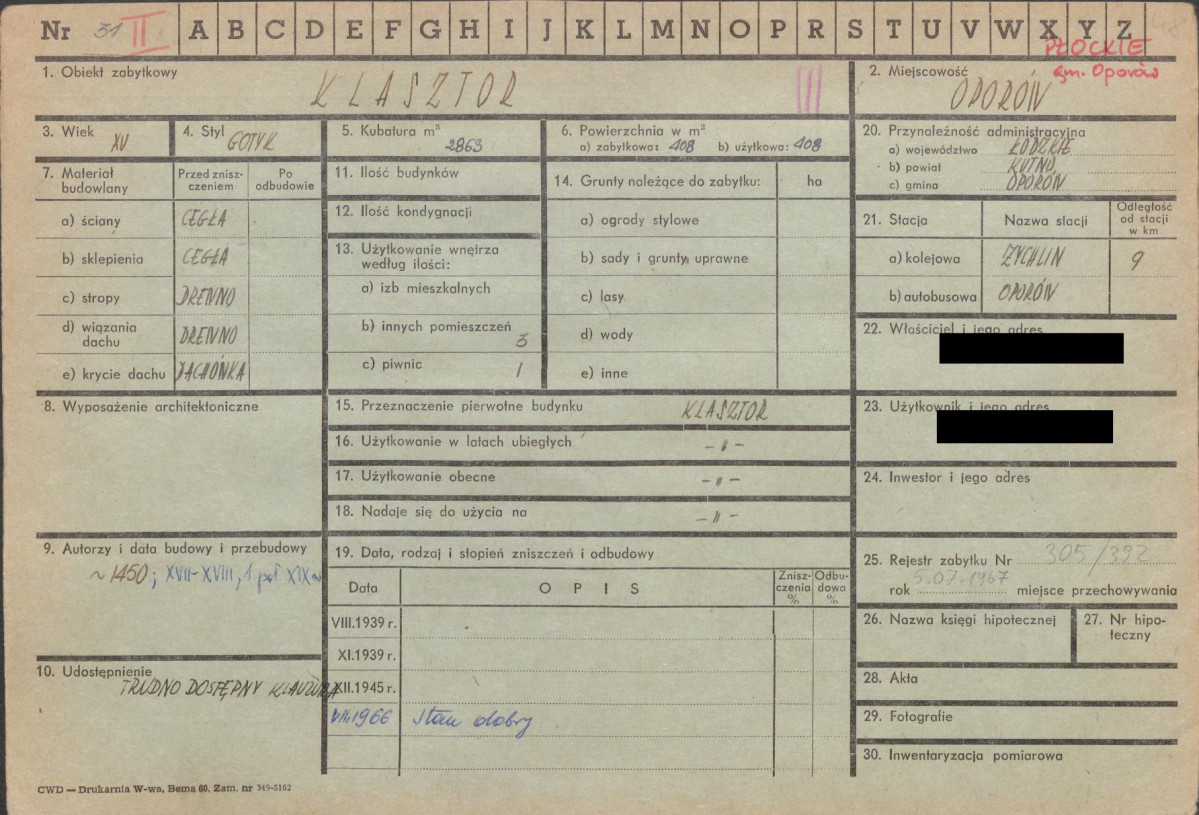 Nr 31 II A B C D E F G H I J K L M N O P R S T U V W X Y Z
PŁOCKIE
gm. Oporów
1. Obiekt zabytkowy
KLASZTOR III
2. Miejscowość
OPORÓW
3. Wiek
XV
4. Styl
GOTYK
5. Kubatura m³
2863
6. Powierzchnia w m²
a) zabytkowa: 408 b) użytkowa: 408
20. Przynależność administracyjna
a) województwo ŁÓDZKIE
b) powiat KUTNO
c) gmina OPORÓW
7. Materiał budowlany
Przed znisz-
czeniem
Po
odbudowie
a) ściany CEGŁA
b) sklepienia CEGŁA
c) stropy DREWNO
d) wiązania
dachu DREWNO
e) krycie dachu DACHÓWKA
11. Ilość budynków
12. Ilość kondygnacji
13. Użytkowanie wnętrza
według ilości:
a) izb mieszkalnych
b) innych pomieszczeń 3
c) piwnic 1
14. Grunty należące do zabytku: ha
a) ogrody stylowe
b) sady i grunty uprawne
c) lasy
d) wody
e) inne
21. Stacja
Nazwa stacji
Odległość
od stacji
w km
a) kolejowa ŻYCHLIN 9
b) autobusowa OPORÓW
22. Właściciel i jego adres
23. Użytkownik i jego adres
24. Inwestor i jego adres
8. Wyposażenie architektoniczne
15. Przeznaczenie pierwotne budynku KLASZTOR
16. Użytkowanie w latach ubiegłych – " –
17. Użytkowanie obecne – " –
18. Nadaje się do użycia na – " –
9. Autorzy i data budowy i przebudowy
~ 1450; XVII-XVIII, 1 poł XIX w
10. Udostępnienie
TRUDNO DOSTĘPNY KLAUZURA
19. Data, rodzaj i stopień zniszczeń i odbudowy
Data
O P I S
Znisz-
czenia
%
Odbu-
dowa
%
VIII.1939 r.
XI.1939 r.
XII.1945 r.
VIII.1966 Stan dobry
25. Rejestr zabytku Nr 305/392
rok 5.07.1967 miejsce przechowywania
26. Nazwa księgi hipotecznej
27. Nr hipo-
teczny
28. Akta
29. Fotografie
30. Inwentaryzacja pomiarowa
CWD — Drukarnia W-wa, Bema 60. Zam. nr 349-5162